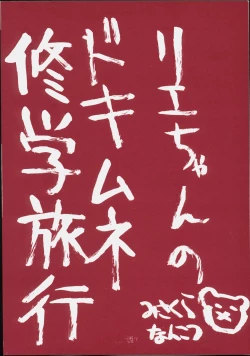 リエちゃんの
ドキムネ
修学旅行
みさくら
なんこつ